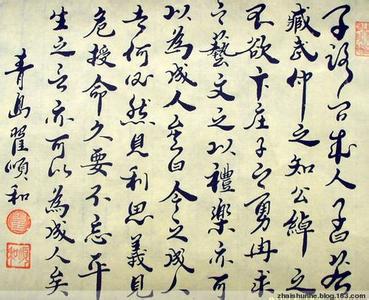 子路问成人子曰若
臧武仲之知公綽之
不欲卞庄子之勇冉求
之藝文之以禮樂亦可
以為成人矣曰今之成人
者何必然見利思義見
危授命久要不忘平
生之言亦可以為成人矣
青島翟順和
zhaishunhe.blog.163.com